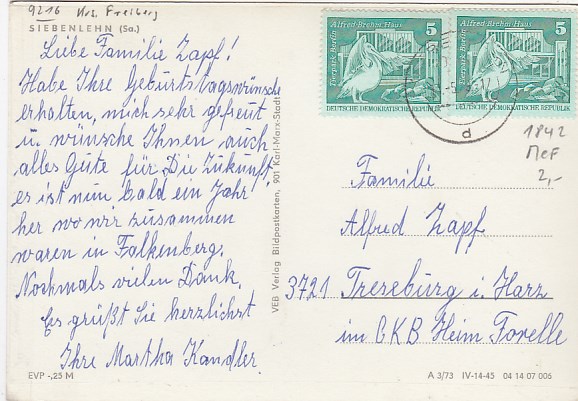 9216 Krs. Freiberg
SIEBENLEHN (Sa.)
Liebe Familie Zapf!
Habe Ihre Geburtstagswünsche
erhalten, mich sehr gefreut
u. wünsche Ihnen auch
alles Gute für Die Zukunft,
es ist nun bald ein Jahr
her wo wir zusammen
waren in Falkenberg.
Nochmals vielen Dank.
Es grüßt Sie herzlichst
Ihre Martha Kandler
EVP -,25 M
VEB Verlag Bildpostkarten, 901 Karl-Marx-Stadt
Alfred-Brehm-Haus 5
Tierpark Berlin
DEUTSCHE DEMOKRATISCHE REPUBLIK
Alfred-Brehm-Haus 5
Tierpark Berlin
DEUTSCHE DEMOKRATISCHE REPUBLIK
d
1842
MeF
2,-
Familie
Alfred Zapf
3721 Treseburg i. Harz
im GKB Heim Forelle
A 3/73 IV-14-45 04 14 07 006